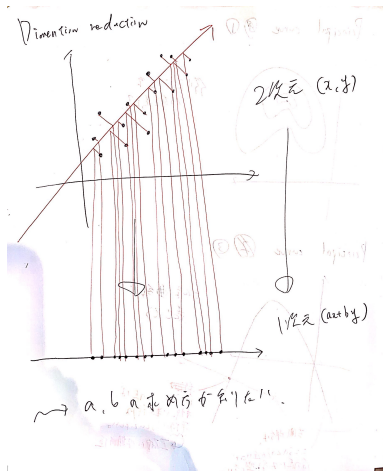 Dimention reduction
2次元 (x,y)
1次元 (ax+by)
〜→ a, b の求め方が知りたい.